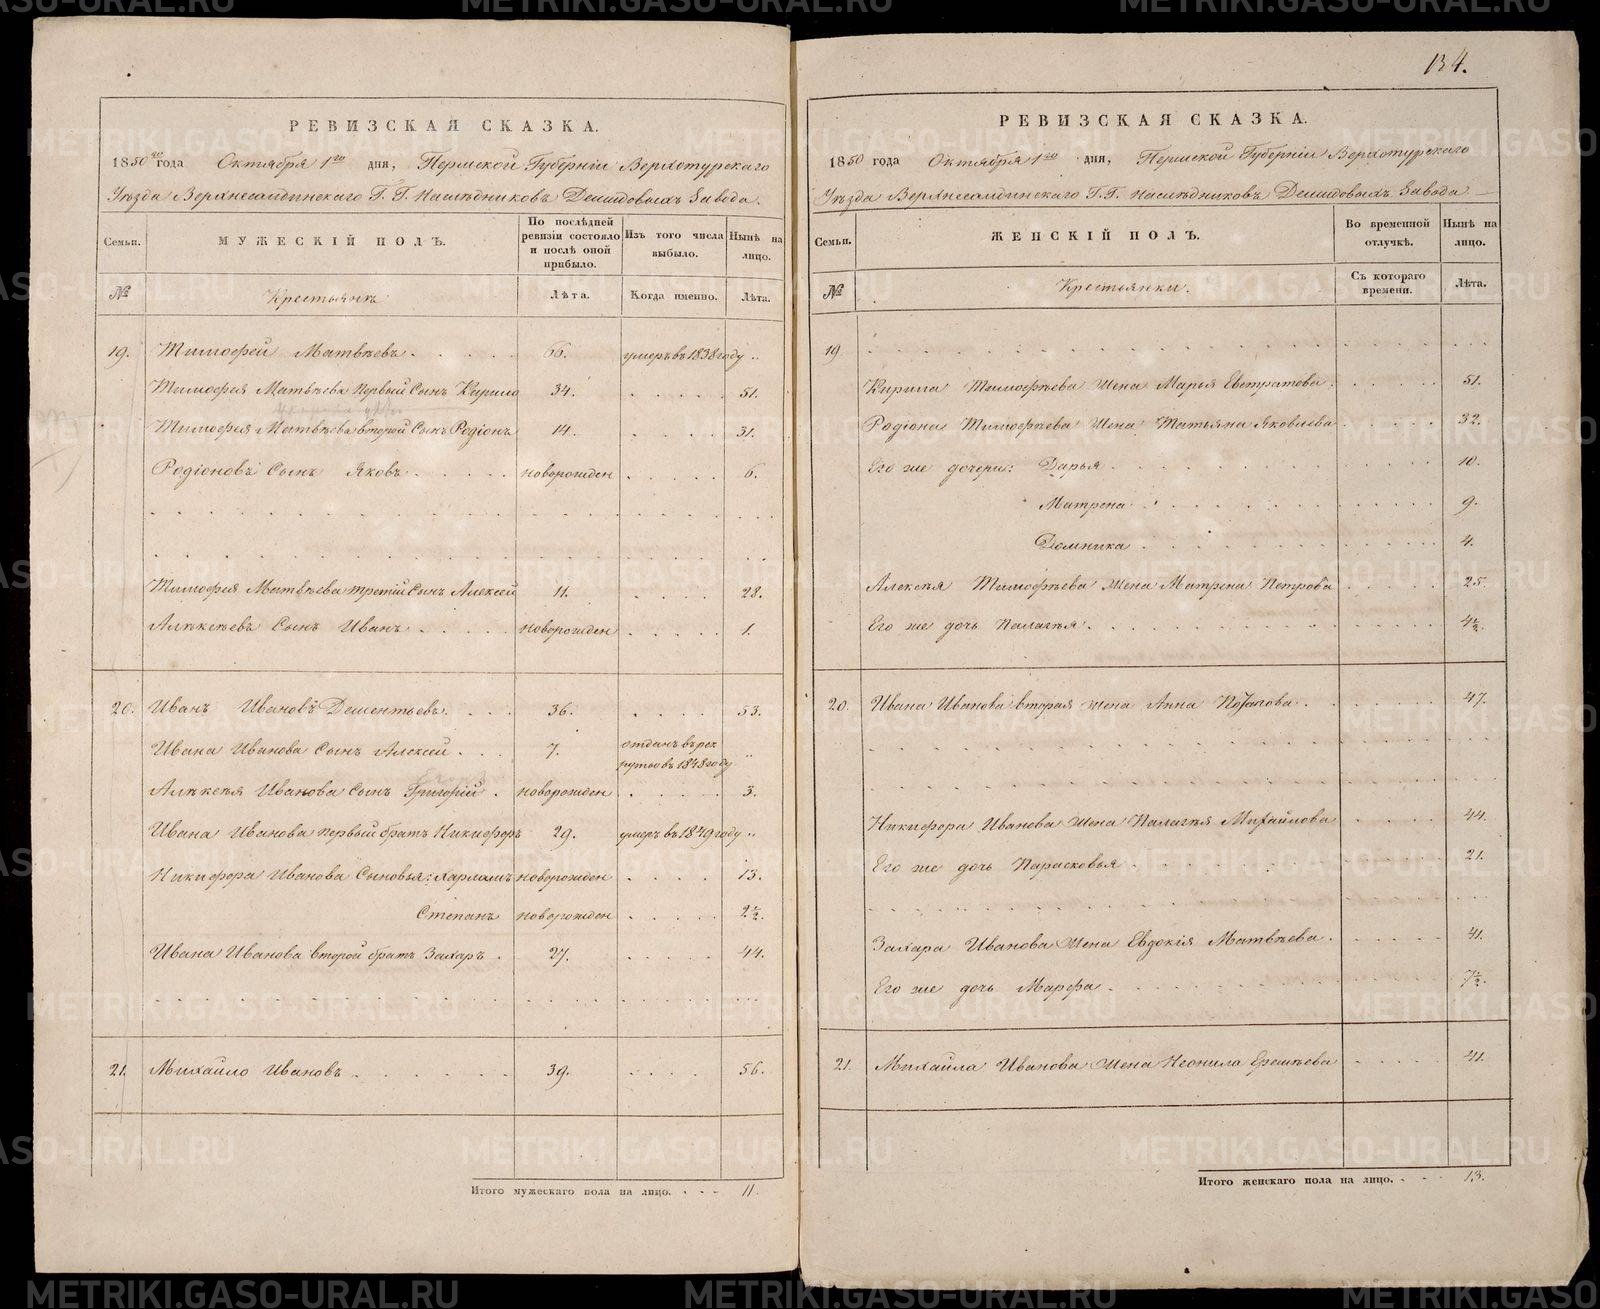 134.
РЕВИЗСКАЯ СКАЗКА.
1850го года Октября 1го дня, Пермской Губерніи Верхотурскаго
Уѣзда Верхнесалдинскаго Г. Г. Наслѣдниковъ Демидовыхъ Завода.
Семьи.
МУЖЕСКІЙ ПОЛЪ.
По послѣдней ревизіи состояло и послѣ оной прибыло.
Изъ того числа выбыло.
Нынѣ на лицо.
№ Крестьянъ Лѣта. Когда именно. Лѣта.
19. Тимофей Матвѣевъ 66. умеръ въ 1838 году „
Тимофея Матвѣева первый Сынъ Кирило 34. 51.
Тимофея Матвѣева второй Сынъ Родіонъ 14. 31.
Родіоновъ Сынъ Яковъ новорожден 6.
Тимофея Матвѣева третій Сынъ Алексей 11. 28.
Алѣксѣевъ Сынъ Иванъ новорожден 1.
20. Иванъ Ивановъ Дементьевъ. 36. 53.
Ивана Иванова Сынъ Алексей 7. отданъ въ рек
рутовъ 1848 году „
Алѣксѣя Иванова Сынъ Григорій новорожден 3.
Ивана Иванова первый братъ Никифоръ 29. умеръ въ 1849 году „
Никифора Иванова Сыновья: Харламъ новорожден 13.
Степанъ новорожден 2½.
Ивана Иванова второй братъ Захаръ. 27. 44.
21. Михайло Ивановъ 39. 56.
Итого мужескаго пола на лицо. 11.
РЕВИЗСКАЯ СКАЗКА.
1850 года Октября 1го дня, Пермской Губерніи Верхотурскаго
Уѣзда Верхнесалдинскаго Г. Г. Наслѣдниковъ Демидовыхъ Завода
Семьи.
ЖЕНСКІЙ ПОЛЪ.
Во временной отлучкѣ.
Нынѣ на лицо.
№ Крестьянки. Съ котораго времени. Лѣта.
19
Кирила Тимофѣева Жена Марья Евстратова. 51.
Родіона Тимофѣева Жена Татьяна Яковлева 32.
Его же дочери: Дарья 10.
Матрена 9.
Домника 4.
Алексѣя Тимофѣева Жена Матрена Петрова 25.
Его же дочь Палагѣя. 4½.
20. Ивана Иванова вторая жена Анна Потапова. 47.
Никифора Иванова Жена Палагѣя Михайлова 44.
Его же дочь Парасковья 21.
Захара Иванова Жена Евдокія Матвѣева. 41.
Его же дочь Марфа. 7½.
21. Михайла Иванова Жена Неонила Еремѣева 41.
Итого женскаго пола на лицо. 13.
METRIKI.GASO-URAL.RU